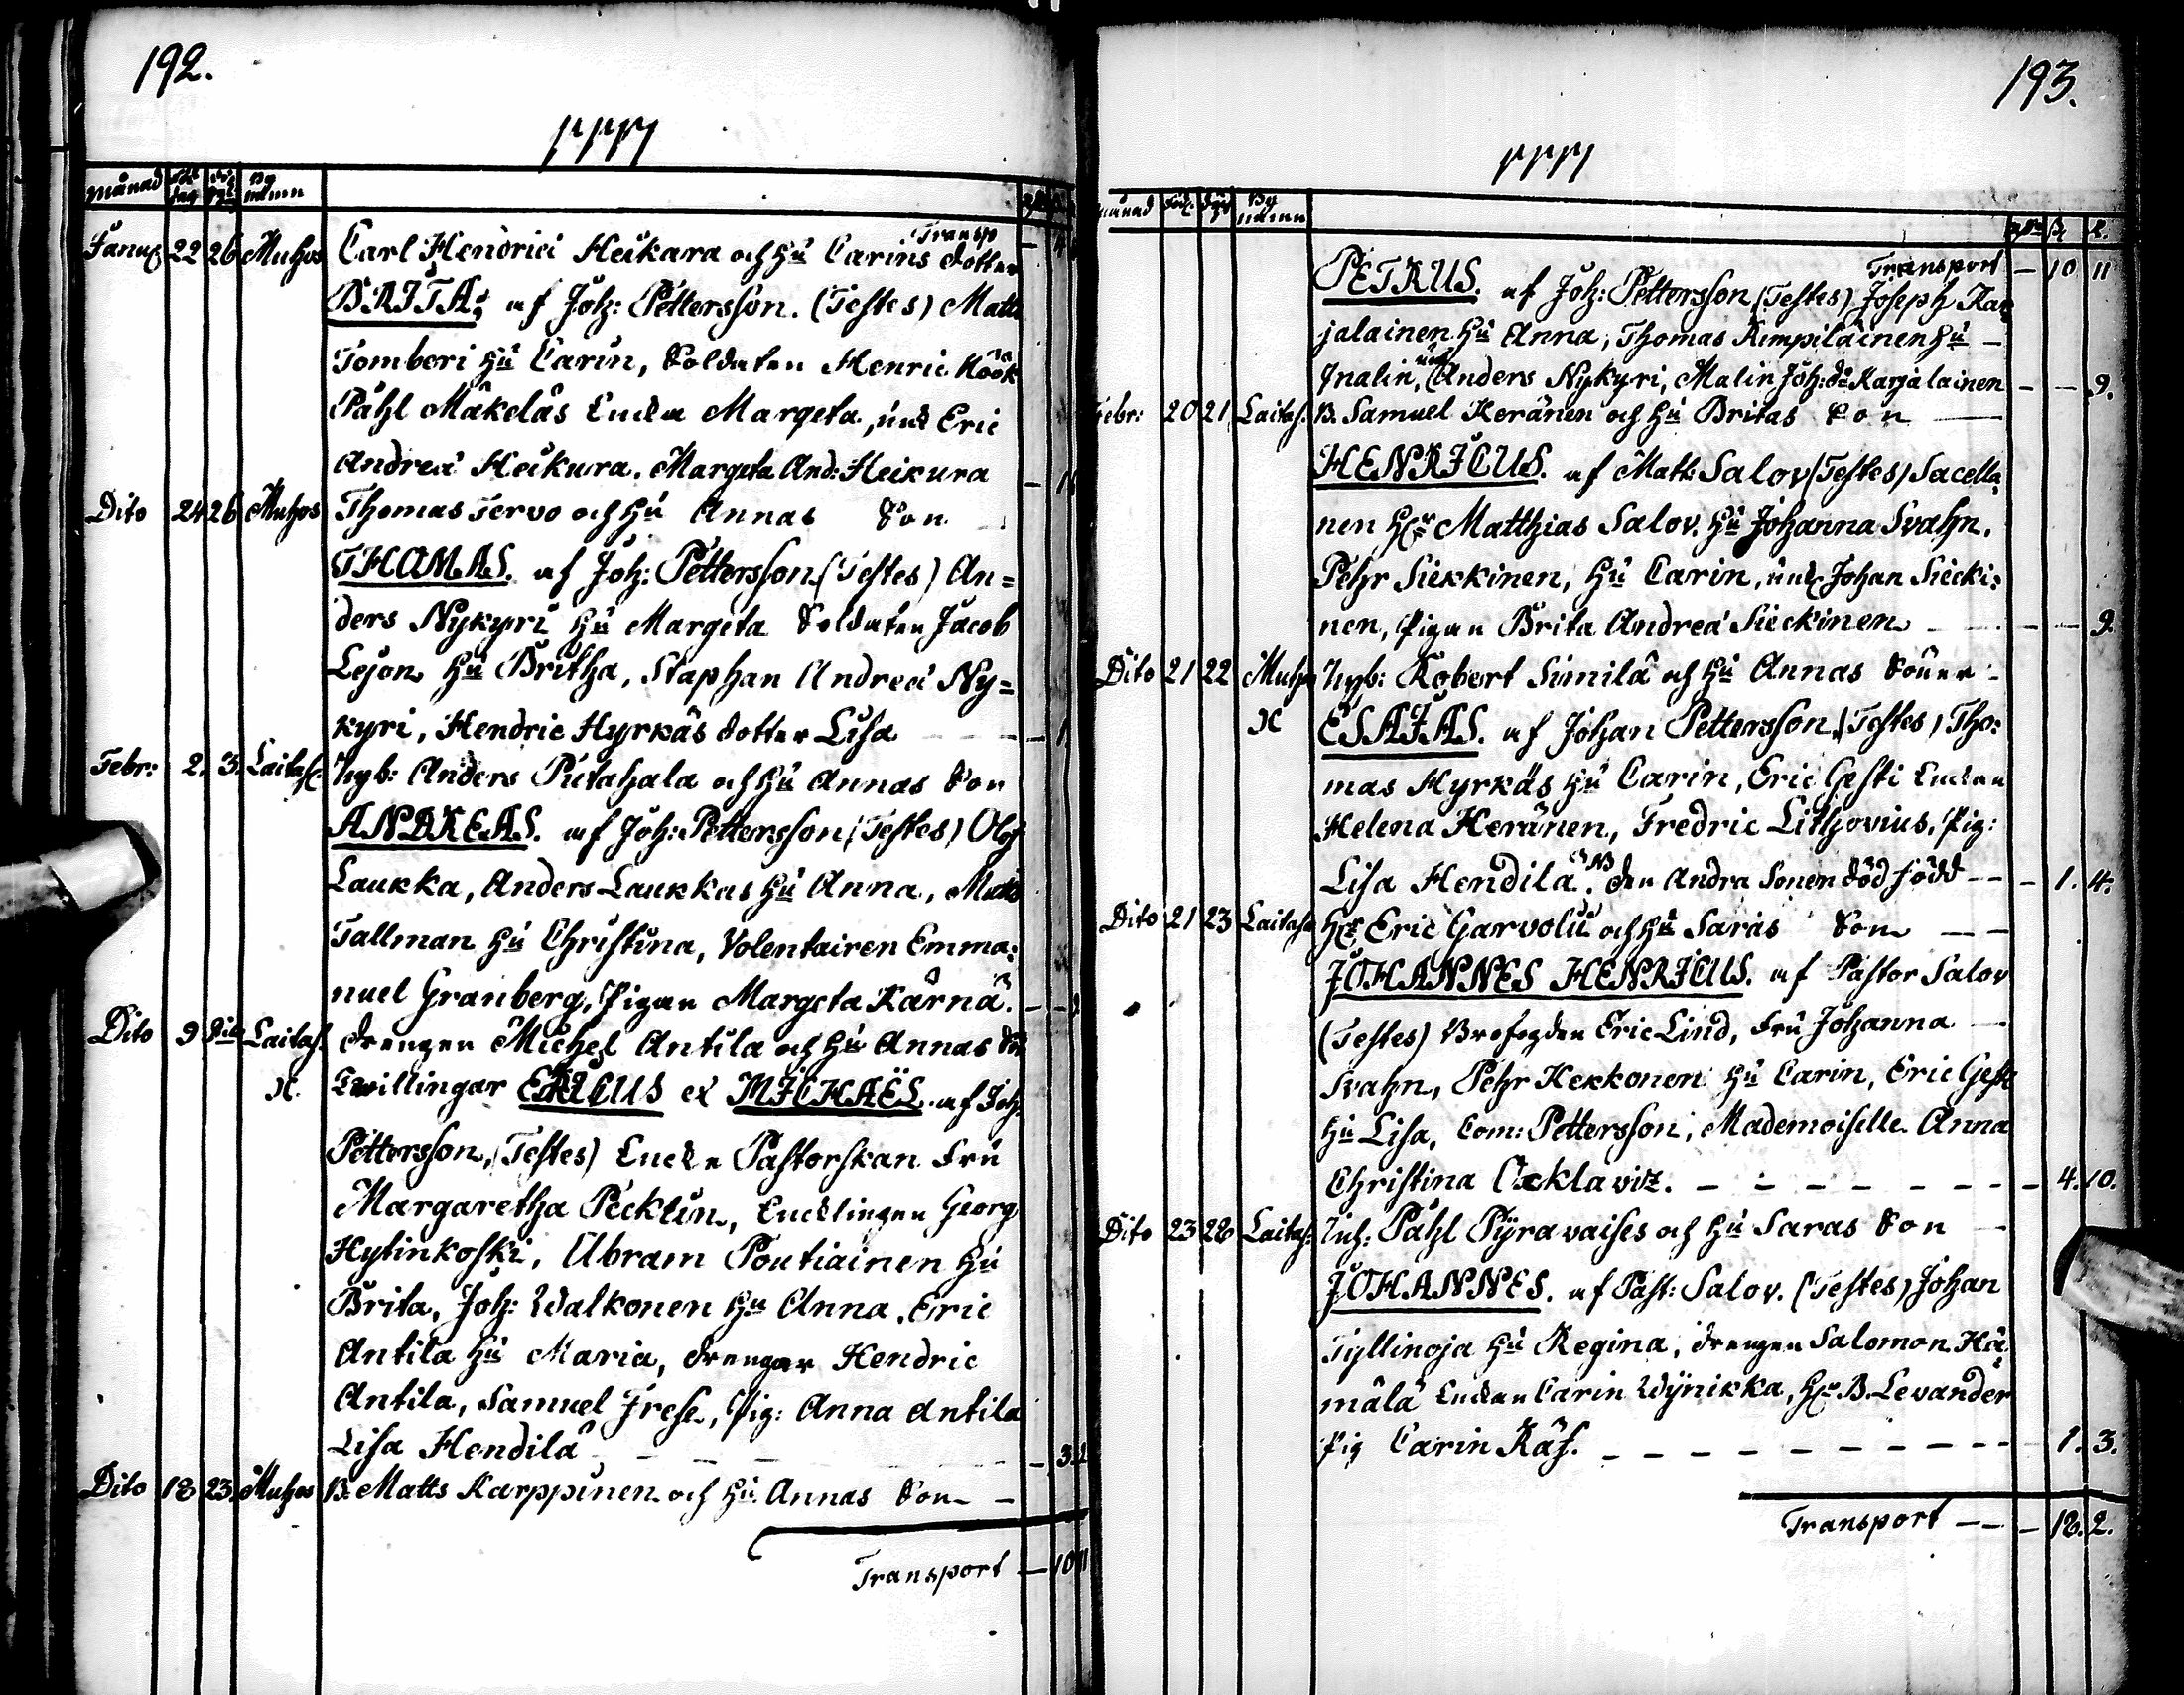 192.
1777
Månad dag By namn
Transp
Januar 22 26 Muhos Carl Hendrici Heikara och hu Carins dotter
BRITA, af Joh: Pettersson. (Testes) Matts
Tomberi hu Carin, Soldaten Henric Köök
Påhl Mäkeläs Enka Margeta, und Eric
Andreæ Heikura. Margeta And: Heikura
Dito 24 26 Muhos Thomas Tervo och hu Annas Son
THOMAS. af Joh: Pettersson (Testes) An=
ders Nykyri hu Margeta Soldaten Jacob
Lejon hu Britha, Staphan Andreæ Ny=
kyri, Hendric Hyrkäs dotter Lisa – 1.
Febr: 2. 3. Laitas: Nyb: Anders Putahala och hu Annas Son
ANDREAS. af Joh: Pettersson (Testes) Olof
Laukka, Anders Laukkas hu Anna, Matts
Tallman hu Christina, Volentairen Emma:
nuel Granberg, Pigan Margeta Kärnä.
Dito 9 Dito Laitas. drengen Michel Antila och hu Annas
X. Twillingar ERICUS et MICHAËL. af Joh:
Pettersson, (Testes) Enke Pastorskan Fru
Margaretha Pecklin, Encklingen Georg
Hylinkoski, Abram Pontiainen hu
Brita, Joh: Walkonen hu Anna. Eric
Antila hu Maria, drengar Hendric
Antila, Samuel Frese, Pig: Anna Antila
Lisa Hendilä – – – 3.
Dito 18 23. Muhos B. Matts Karppinen och hu Annas Son –
Transport – 10 11
193.
1777
Månad By namn
Transport – 10 11
PETRUS. af Joh: Pettersson (Testes) Joseph Kar
jalainen hu Anna, Thomas Kimpiläinen hu –
Malin, und Anders Nykyri, Malin Joh: dr Karjalainen – – 9.
Febr: 20 21 Laitas. B. Samuel Keränen och hu Britas Son
HENRICUS. af Matts Salov (Testes) Sacella
nen Hr Matthias Salov. hu Johanna Svahn.
Pehr Siekkinen, hu Carin, und Johan Siecki:
nen, Pigan Brita Andreæ Sieckinen – – 9.
Dito 21 22 Muhos Nyb: Robert Similä och hu Annas Söner –
X ESAIAS. af Johan Pettersson (Testes) Tho:
mas Hyrkäs hu Carin, Eric Gesti Enkan
Helena Keränen, Fredric Lithovius, Pig:
Lisa Hendilä. NB den Andra Sonen död född – – 1. 4.
Dito 21 23 Laitas. Hr Eric Garvoli och hu Saras Son – –
JOHANNES HENRICUS. af Pastor Salov
(Testes) Brofogden Eric Lind, Fru Johanna –
Svahn, Pehr Kekkonen hu Carin, Eric Gesti
hu Lisa, Com: Pettersson, Mademoiselle Anna
Christina Cxklavitz. – – – – 4. 10.
Dito 23 28 Laitas: Inh: Påhl Pyravaises och hu Saras Son –
JOHANNES. af Past: Salov. (Testes) Johan
Tyllinoja hu Regina, drengen Salomon Hä
mälä Enkan Carin Wynikka, Hr B. Levander
Pig Carin Räf. – – – – 1. 3.
Transport – – – 18. 2.